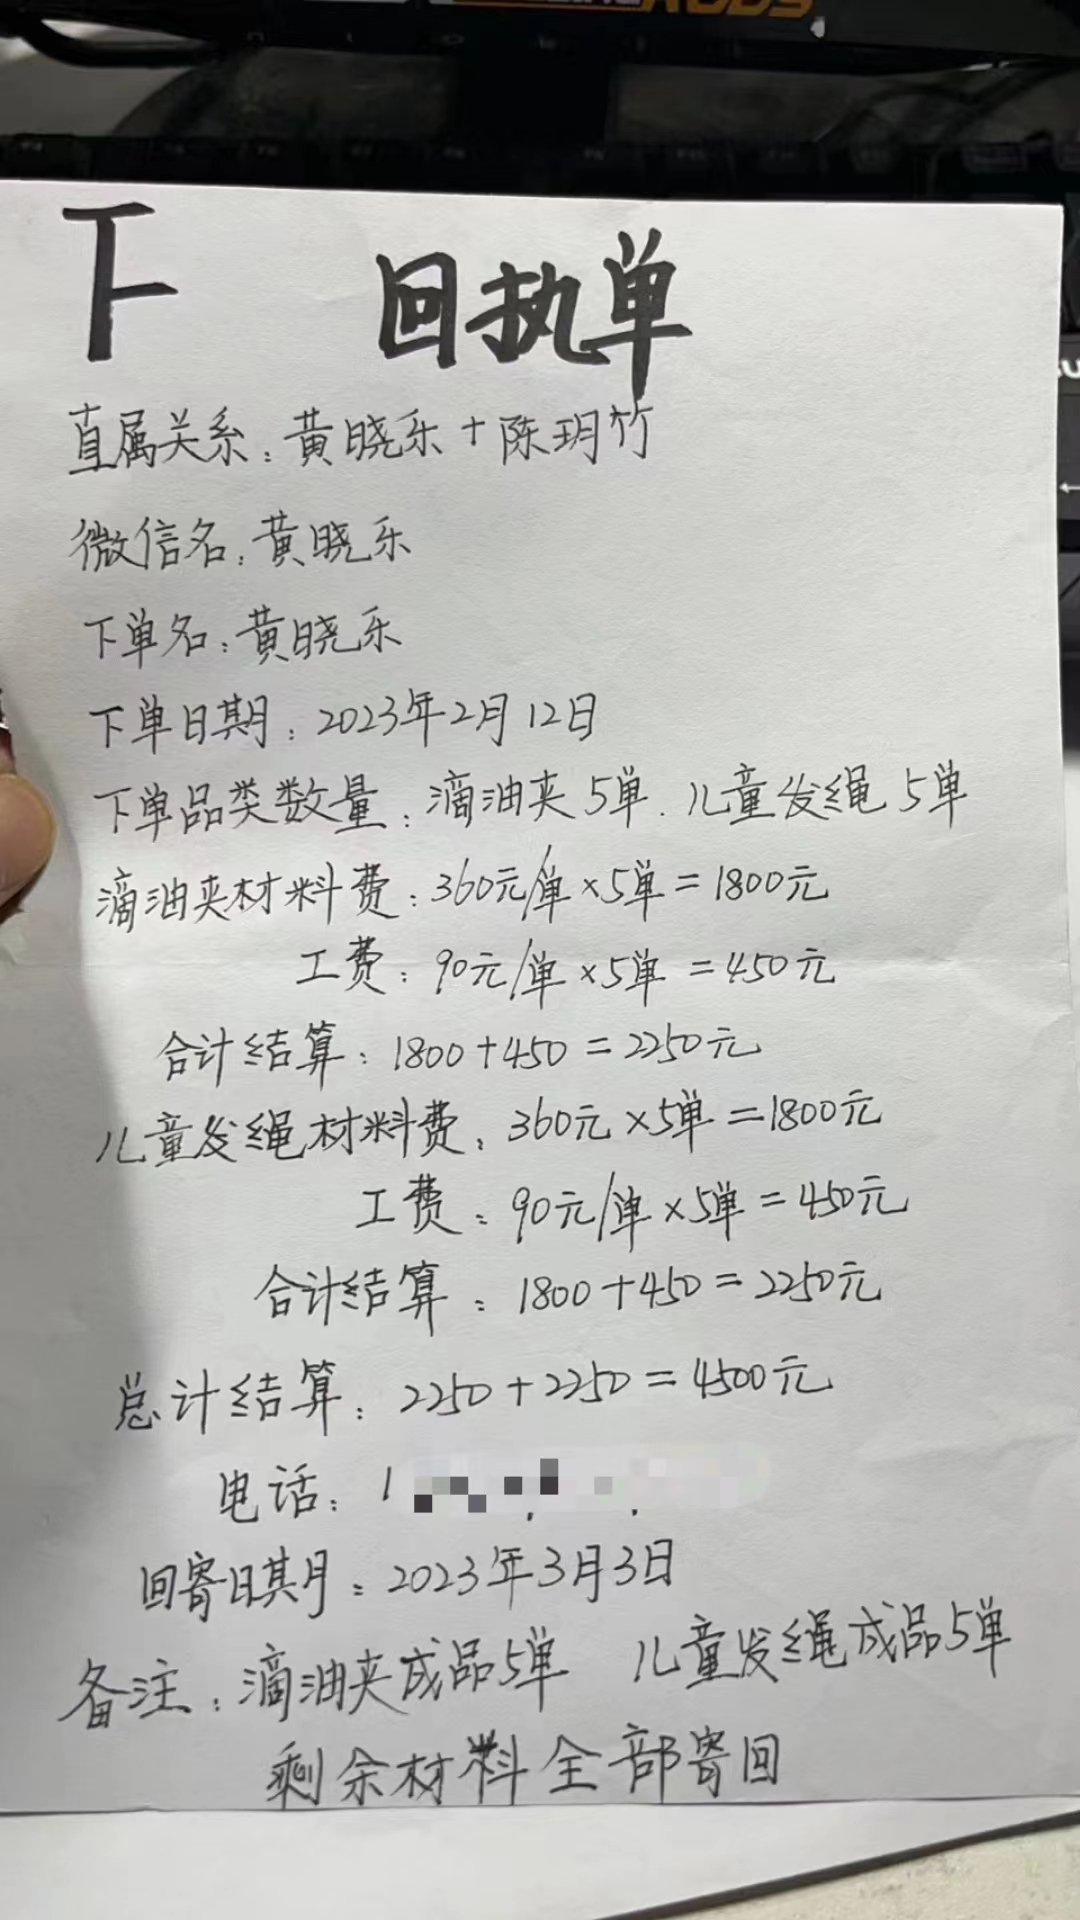 下 回执单
直属关系：黄晓乐+陈玥竹
微信名：黄晓乐
下单名：黄晓乐
下单日期：2023年2月12日
下单品类数量：滴油夹5单.儿童发绳5单
滴油夹材料费：360元/单×5单=1800元
工费：90元/单×5单=450元
合计结算：1800+450=2250元
儿童发绳材料费：360元×5单=1800元
工费：90元/单×5单=450元
合计结算：1800+450=2250元
总计结算：2250+2250=4500元
电话：1
回寄日期：2023年3月3日
备注：滴油夹成品5单 儿童发绳成品5单
剩余材料全部寄回